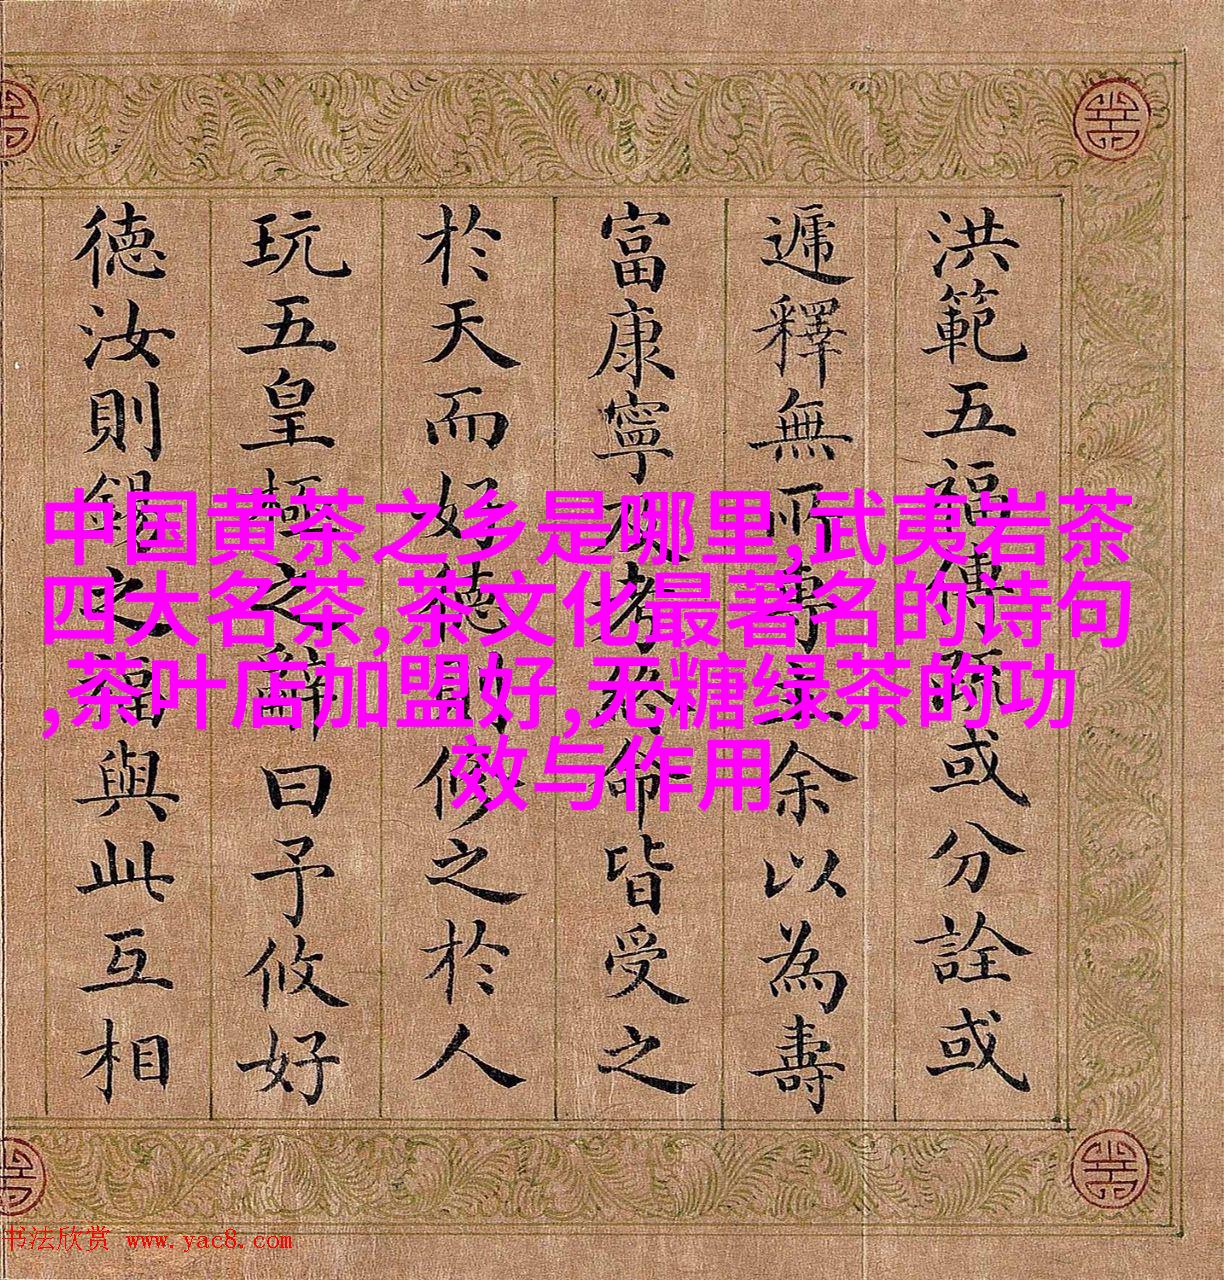 中国黄茶之乡是哪里,武夷岩茶
四大名茶,茶文化最著名的诗句
,茶叶店加盟好,无糖绿茶的功
效与作用
洪範五福傳疏或分詮或
遞釋無所專主余以為壽
富康寧考終命皆受之
於天而好德則修之於人
玩五皇極之辭曰予攸好
德汝則錫之福與此互相
书法欣赏 www.yac8.com